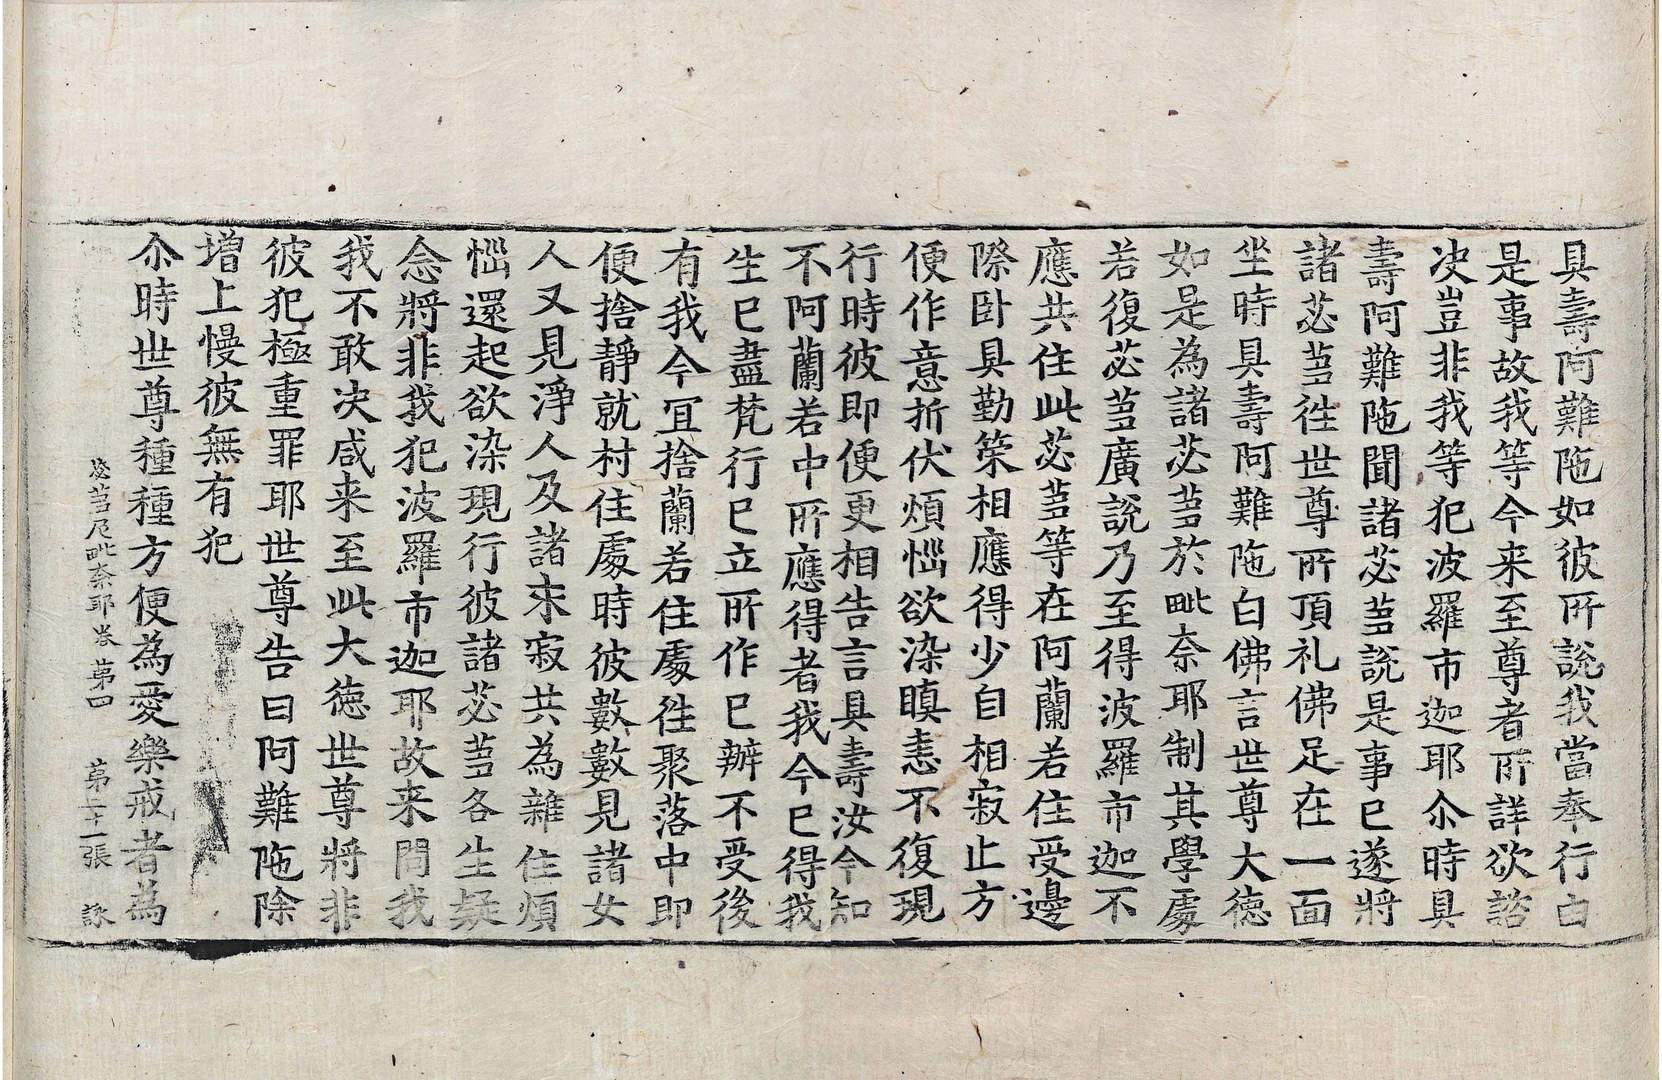 具壽阿難陁如彼所說我當奉行白
是事故我等今来至尊者所詳欲諮
决豈非我等犯波羅市迦耶尒時具
壽阿難陁聞諸苾芻說是事已遂將
諸苾芻徃世尊所頂礼佛足在一面
坐時具壽阿難陁白佛言世尊大徳
如是為諸苾芻於毗奈耶制其學處
若復苾芻廣說乃至得波羅市迦不
應共住此苾芻等在阿蘭若住受邊
際卧具勤策相應得少自相寂止方
便作意折伏煩惱欲染瞋恚不復現
行時彼即便更相告言具壽汝今知
不阿蘭若中所應得者我今已得我
生已盡梵行已立所作已辦不受後
有我今冝捨蘭若住處徃聚落中即
便捨靜就村住處時彼數數見諸女
人又見淨人及諸求寂共為雜住煩
惱還起欲染現行彼諸苾芻各生疑
念將非我犯波羅市迦耶故来問我
我不敢决咸来至此大徳世尊將非
彼犯極重罪耶世尊告曰阿難陁除
増上慢彼無有犯
尒時世尊種種方便為愛樂戒者為
苾芻尼毗奈耶卷 苐四 苐二十一張 詠